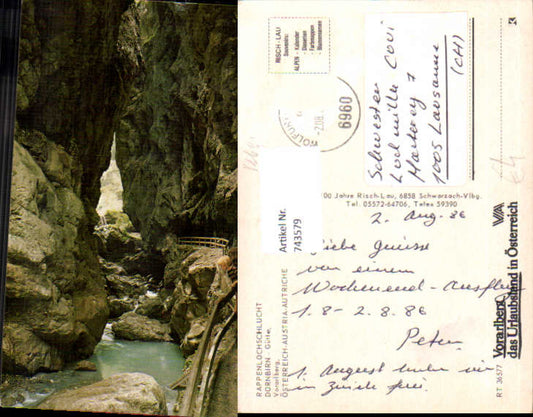 RISCH-LAU
Souvenirs:
ALPEN - Kalender
- Diaserien
- Farbmappen
- Blumenserien
WOLFURT
-2.08.
6960
Schwester
Ludmilla Covi
7
1005 Lausanne
(CH)
00 Jahre Risch-Lau, 6858 Schwarzach-Vlbg.
Tel. 05572-64706, Telex 59390
Artikel Nr.
743579
2. Aug. 86
Liebe Grüsse
von einem
Wochenend-Ausflug
1.8-2.8.86
Peter
1. August
in Zürich frei
RAPPENLOCHSCHLUCHT
DORNBIRN - Gütle,
Vorarlberg,
ÖSTERREICH-AUSTRIA-AUTRICHE
Vorarlberg
das Urlaubsland in Österreich
RT 36577